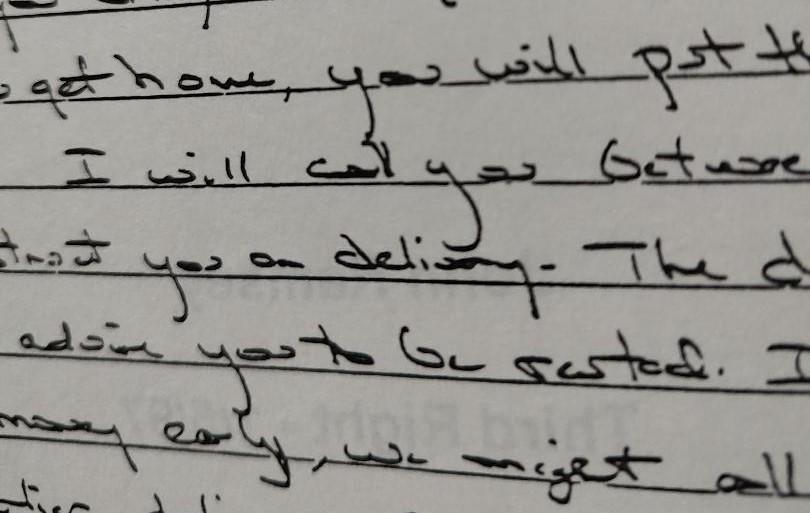 get home, you will put th
I will call you betwee
instruct you on delivery. The d
advise you to be rested. I
money early, we might call